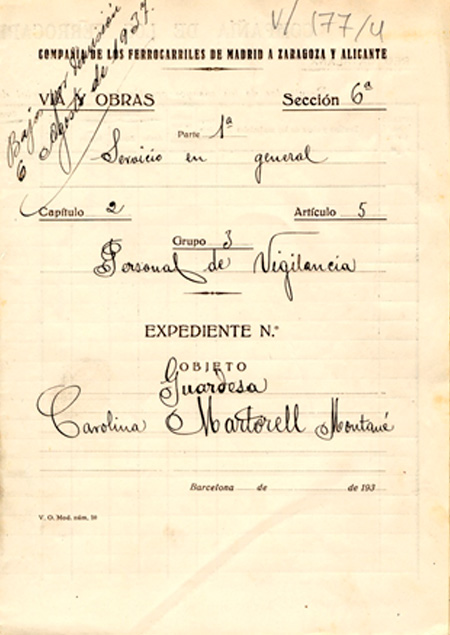 V/177/4
Baja por dimisión
6 Agosto de 1937.
COMPAÑIA DE LOS FERROCARRILES DE MADRID A ZARAGOZA Y ALICANTE
VIA Y OBRAS Sección 6ª
Parte 1ª
Servicio en general
Capítulo 2 Artículo 5
Grupo 3
Personal de Vigilancia
EXPEDIENTE N.º
OBJETO
Guardesa
Carolina Martorell Montané
Barcelona de de 193
V. O. Mod. núm. 59